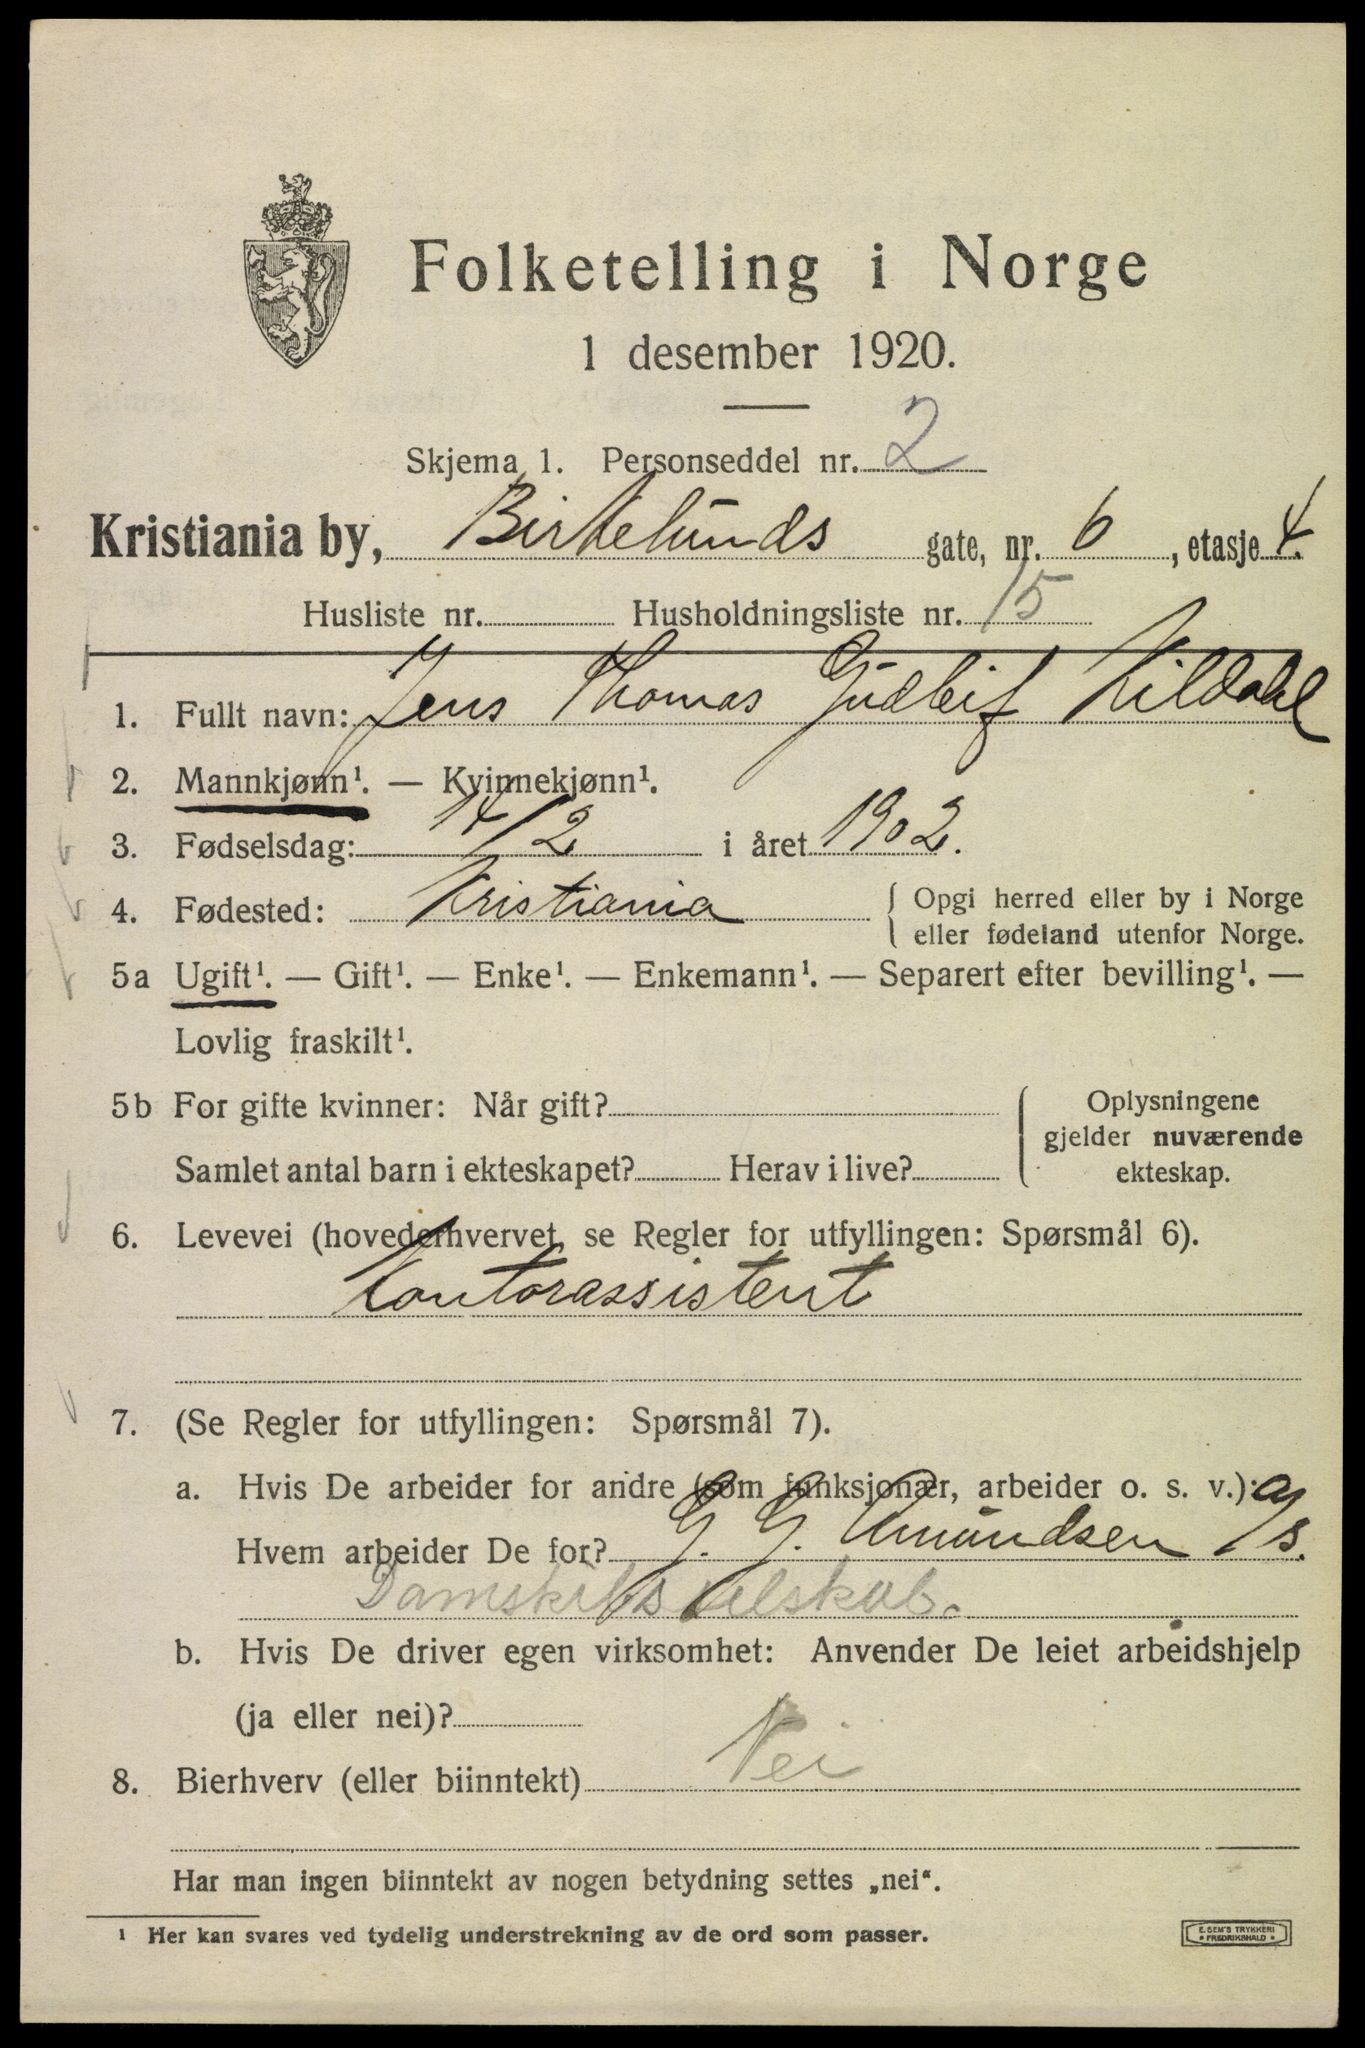 Folketelling i Norge
1 desember 1920.
Skjema 1. Personseddel nr. 2
Kristiania by, Birkelunds gate, nr. 6, etasje 4.
Husliste nr. Husholdningsliste nr. 15
1. Fullt navn: Jens Thomas Gudleif Kildahl
2. Mannkjønn¹. — Kvinnekjønn¹.
3. Fødselsdag: 14/2 i året 1902.
4. Fødested: Kristiania { Opgi herred eller by i Norge
eller fødeland utenfor Norge.
5a Ugift¹. — Gift¹. — Enke¹. — Enkemann¹. — Separert efter bevilling¹. —
Lovlig fraskilt¹.
5b For gifte kvinner: Når gift? { Oplysningene
gjelder nuværende
Samlet antal barn i ekteskapet? Herav i live? ekteskap.
6. Levevei (hovederhvervet, se Regler for utfyllingen: Spørsmål 6).
Kontorassistent
7. (Se Regler for utfyllingen: Spørsmål 7).
a. Hvis De arbeider for andre (som funksjonær, arbeider o. s. v.):
Hvem arbeider De for? G. G. Amundsen a/s.
Damskibsselskab.
b. Hvis De driver egen virksomhet: Anvender De leiet arbeidshjelp
(ja eller nei)?
8. Bierhverv (eller biinntekt) Nei
Har man ingen biinntekt av nogen betydning settes „nei“.
¹ Her kan svares ved tydelig understrekning av de ord som passer.
E. SEM'S TRYKKERI
FREDRIKSHALD